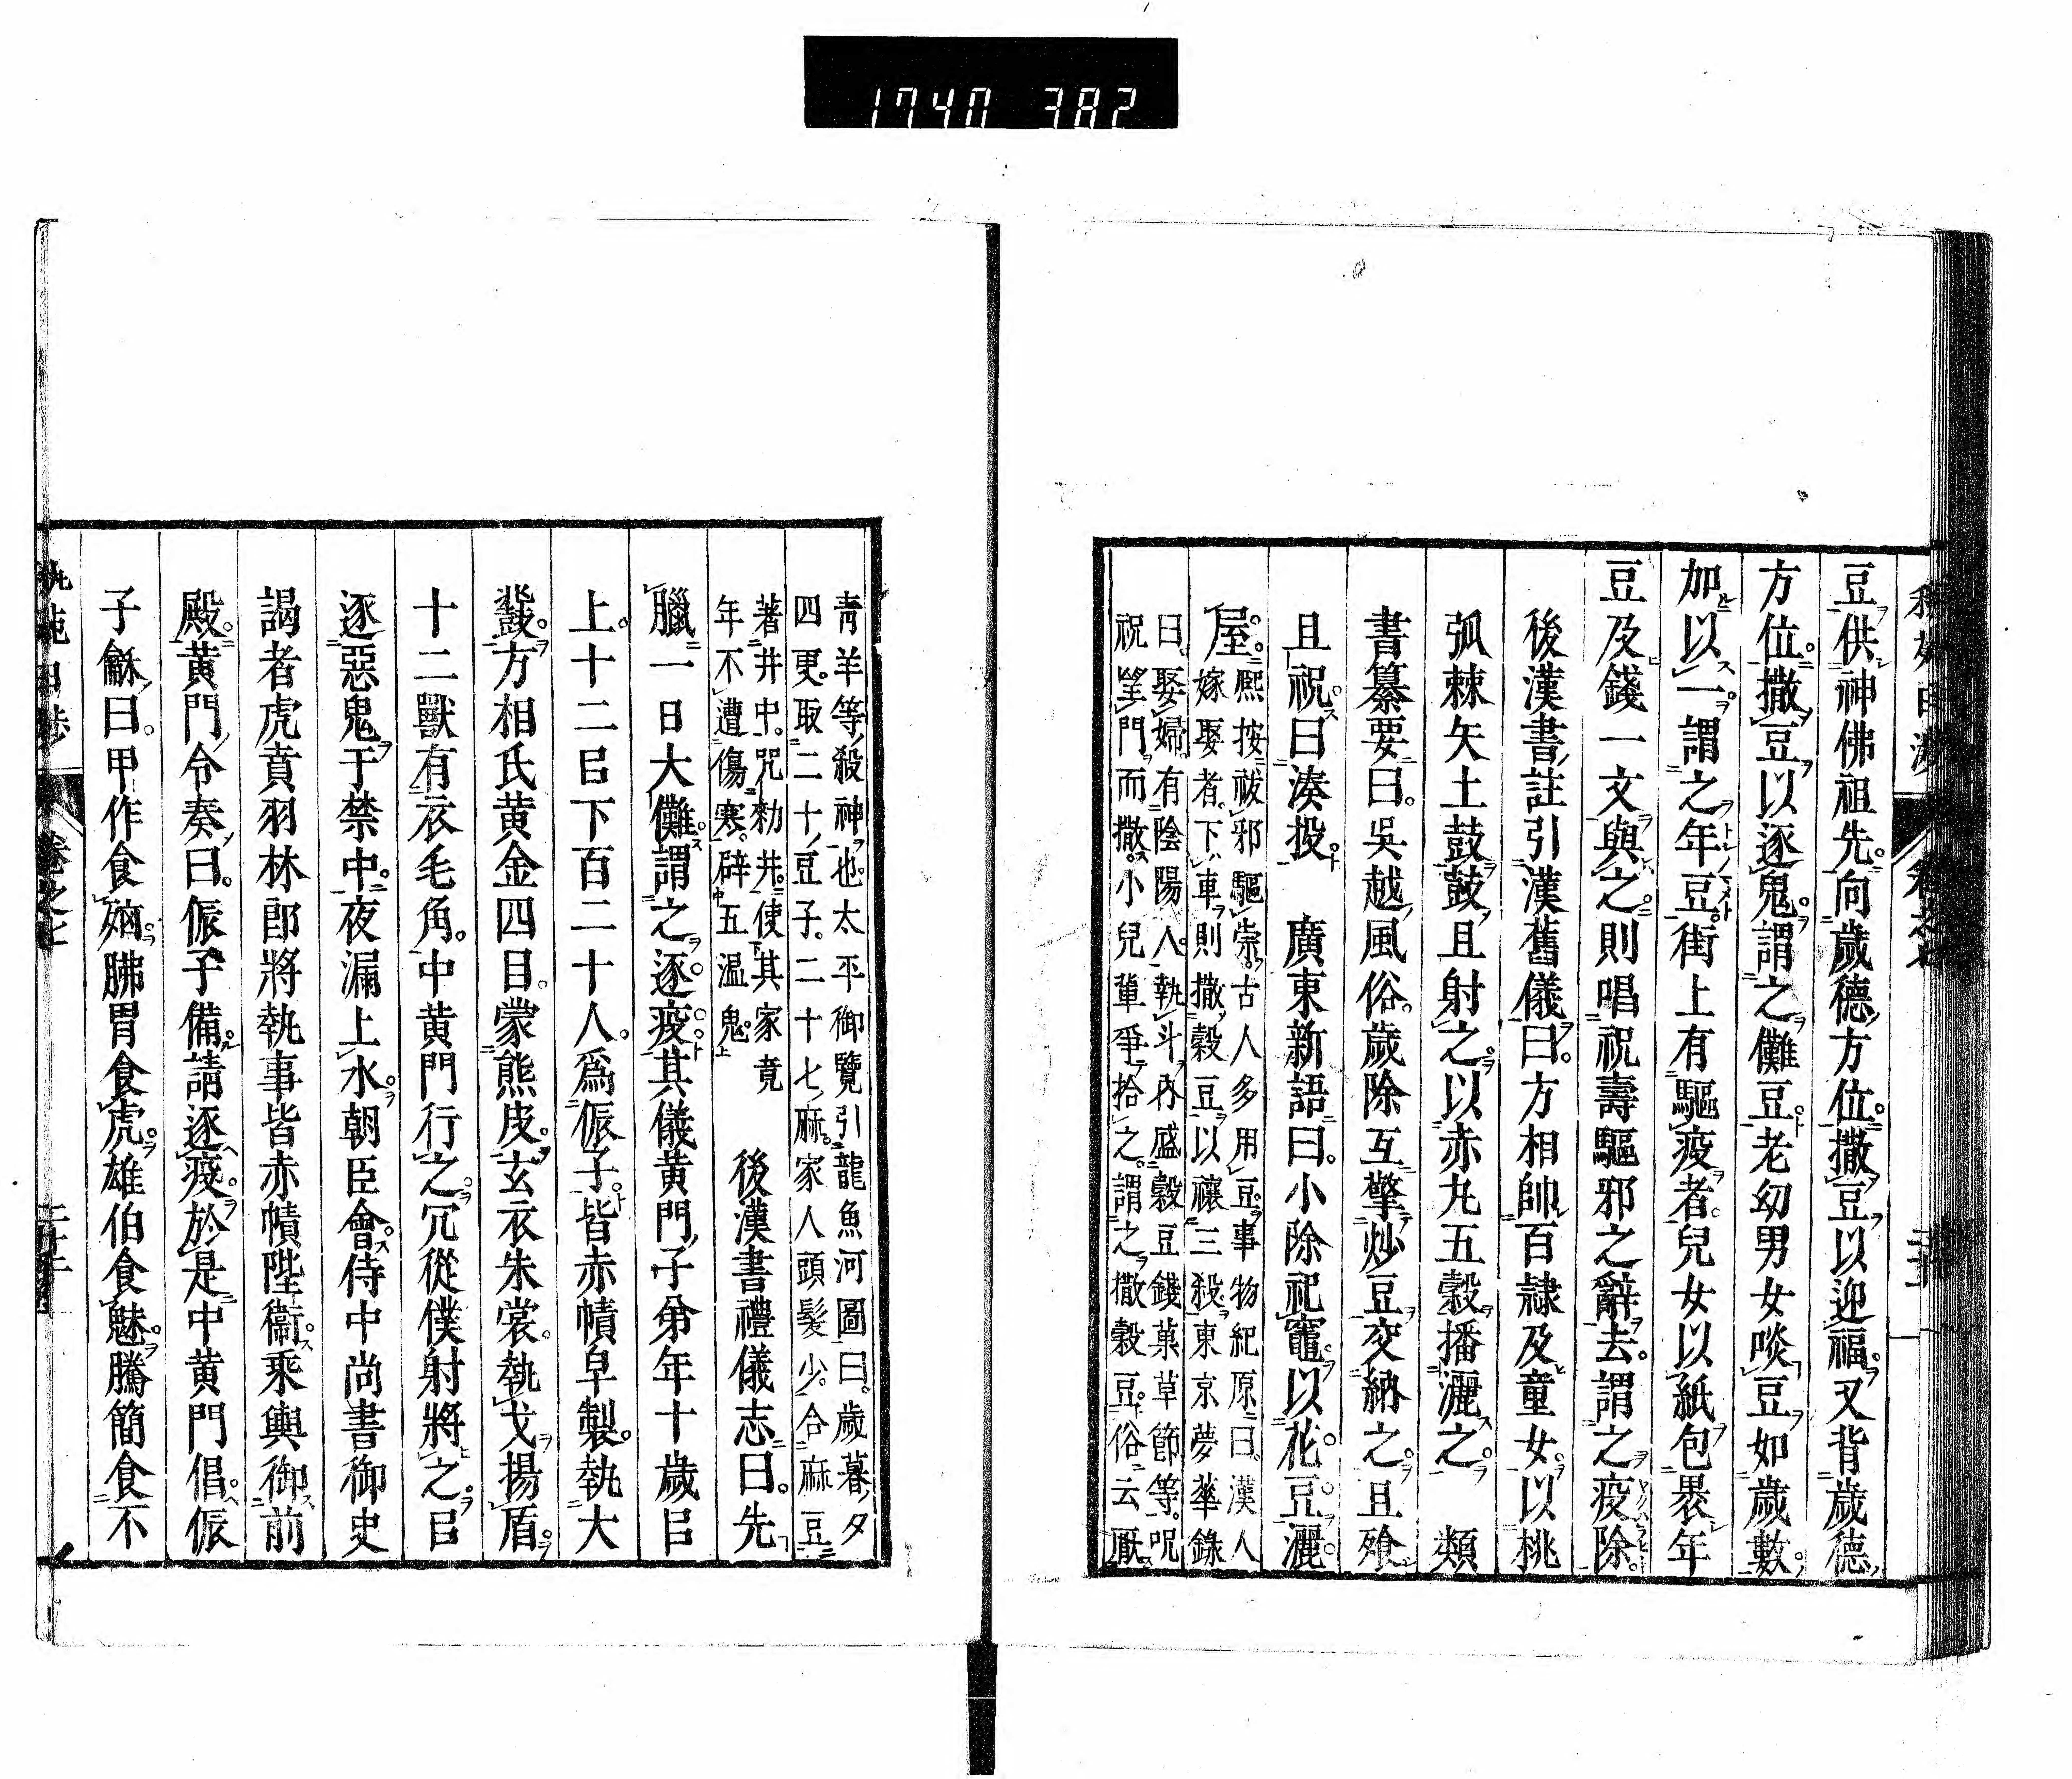 1740 382
豆供神佛祖先。向歲德方位。撒豆以迎福。又背歲德
方位。撒豆以逐鬼。謂之儺豆。老幼男女啖豆如歲數。
加以一。謂之年豆。街上有驅疫者。兒女以紙包裹年
豆及錢一文與之。則唱祝壽驅邪之辭去。謂之疫除。
後漢書註引漢舊儀曰。方相帥百隷及童女。以桃
弧棘矢土鼓鼓且射之。以赤丸五穀播灑之。 類
書纂要曰。吳越風俗。歲除互擎炒豆交納之。且飱
且祝曰湊投。 廣東新語曰。小除祀竈。以花豆。灑
屋。
熈按祓邪驅崇。古人多用豆。事物紀原曰。漢人
嫁娶者。下車則撒穀豆以禳三殺。東京夢華錄
曰。娶婦有陰陽人。執斗內盛穀豆錢菓草節等。呪
祝望門而撒。小兒輩爭拾之。謂之撒穀豆。俗云厭
青羊等殺神也。太平御覽引龍魚河圖曰。歲暮夕
四更。取二十豆子。二十七麻。家人頭髮少。合麻豆
著井中。咒勑井。使其家竟
年不遭傷寒。辟五溫鬼。
後漢書禮儀志曰。先
臘一日大儺。謂之逐疫。其儀黄門子弟年十歲㠯
上。十二㠯下百二十人。爲侲子。皆赤幘皁製。執大
鼗。方相氏黄金四目。蒙熊皮。玄衣朱裳。執戈揚盾。
十二獸有衣毛角。中黄門行之。冗從僕射將之。㠯
逐惡鬼于禁中。夜漏上水。朝臣會。侍中尚書御史
謁者虎賁羽林郎將執事皆赤幘陛衞。乘輿御前
殿。黄門令奏曰。侲子備。請逐疫。於是中黄門倡。侲
子龢。曰。甲作食㐫。胇胃食虎。雄伯食魅。騰簡食不
卷之七